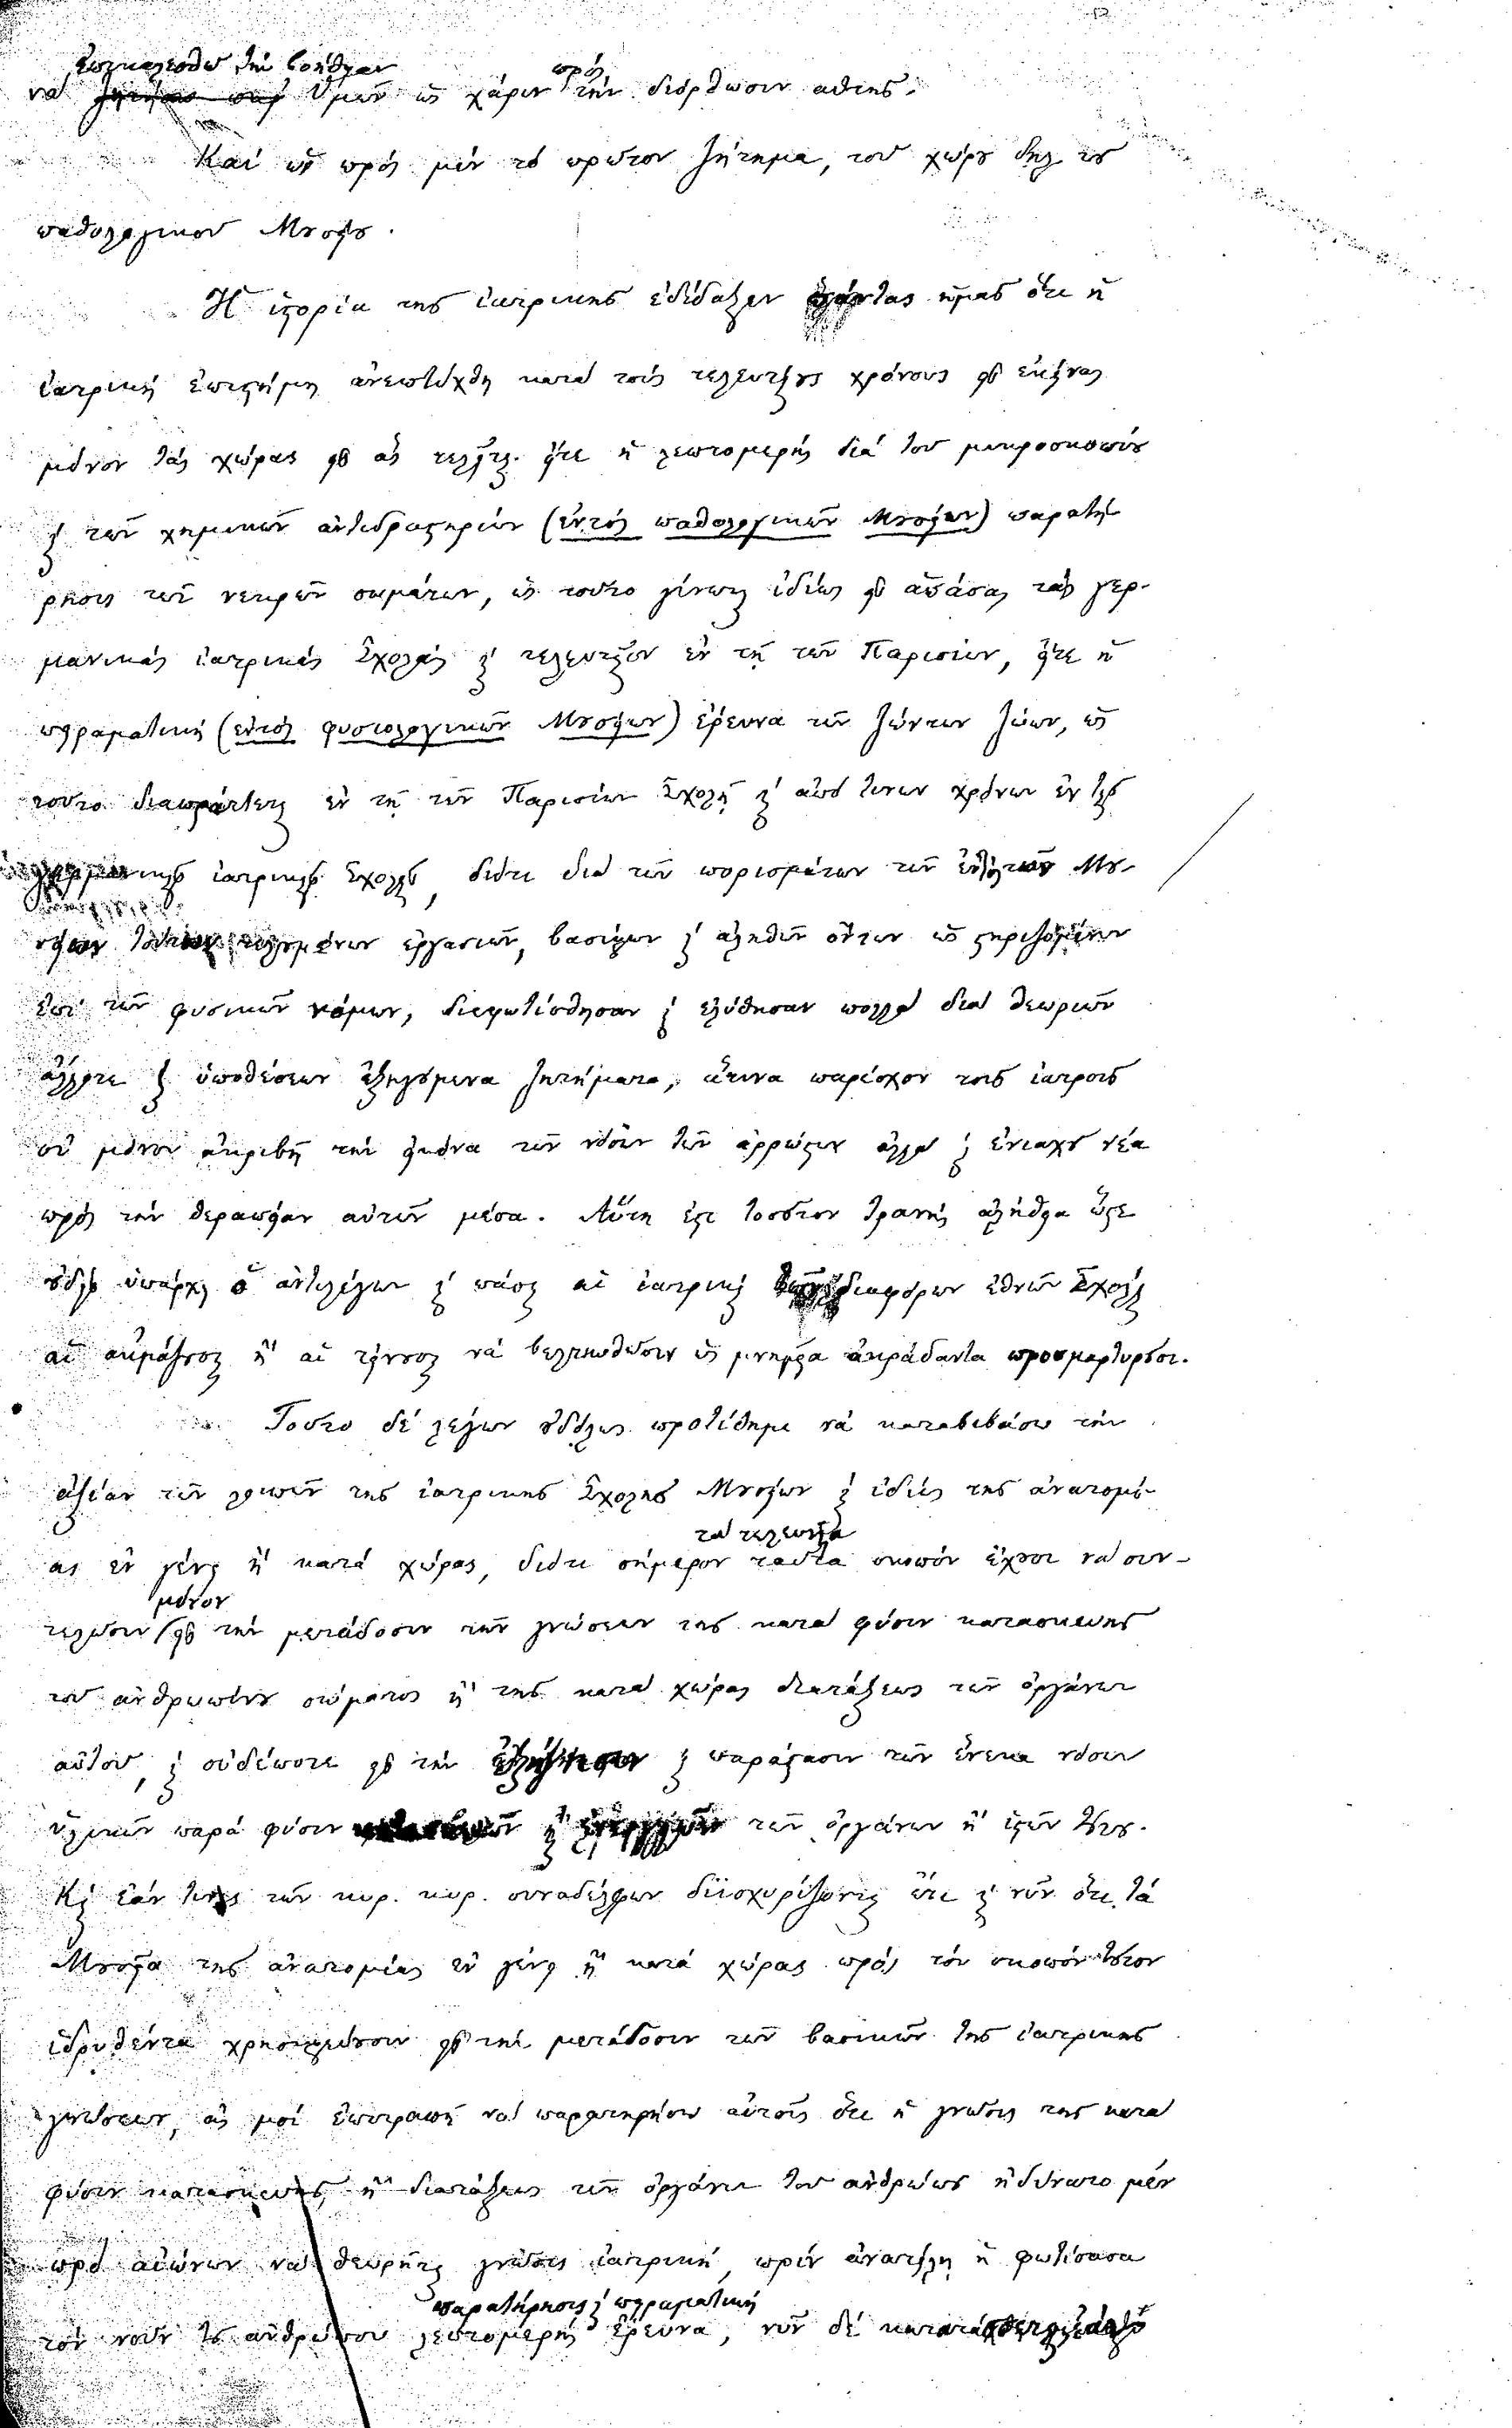 ἐπικαλεσθῶ τὴν βοήθειαν
νὰ ὑμῶν ὡς χάριν πρὸς τὴν διόρθωσιν αὐτῆς.
Καὶ ὡς πρὸς μὲν τὸ πρῶτον ζήτημα, τοῦ χώρου δηλ. τοῦ
παθολογικοῦ Μουσείου.
Ἡ ἱστορία τῆς ἰατρικῆς ἐδίδαξεν ἅπαντας ἡμᾶς ὅτι ἡ
ἰατρικὴ ἐπιστήμη ἀνεπτύχθη κατὰ τοὺς τελευταίους χρόνους εἰς ἐκείνας
μόνον τὰς χώρας εἰς ἃς τελεῖται εἴτε ἡ λεπτομερὴς διὰ τοῦ μικροσκοπίου
καὶ τῶν χημικῶν ἀντιδραστηρίων (ἐντὸς παθολογικῶν Μουσείων) παρατή-
ρησις τῶν νεκρῶν σωμάτων, ὡς τοῦτο γίνεται ἰδίως εἰς ἁπάσας τὰς γερ-
μανικὰς ἰατρικὰς Σχολὰς καὶ τελευταῖον ἐν τῇ τῶν Παρισίων, εἴτε ἡ
πειραματικὴ (ἐντὸς φυσιολογικῶν Μουσείων) ἔρευνα τῶν ζώντων ζώων, ὡς
τοῦτο διαπράττεται ἐν τῇ τῶν Παρισίων Σχολῇ καὶ ἀπό τινων χρόνων ἐν ταῖς
γερμανικαῖς ἰατρικαῖς Σχολαῖς, διότι διὰ τῶν πορισμάτων τῶν ἐντὸς τῶν Μου-
σείων τούτων τελουμένων ἐργασιῶν, βασίμων καὶ ἀληθῶν ὄντων ὡς στηριζομένων
ἐπὶ τῶν φυσικῶν νόμων, διεφωτίσθησαν καὶ ἐλύθησαν πολλὰ διὰ θεωριῶν
ἄλλοτε καὶ ὑποθέσεων ἐξηγούμενα ζητήματα, ἅτινα παρέσχον τοῖς ἰατροῖς
οὐ μόνον ἀκριβῆ τὴν εἰκόνα τῶν νόσων τῶν ἀρρώστων ἀλλὰ καὶ ἐνιαχοῦ νέα
πρὸς τὴν θεραπείαν αὐτῶν μέσα. Αὕτη ἐστὶ τοσοῦτον τρανὴς ἀλήθεια ὥστε
οὐδεὶς ὑπάρχει ὁ ἀντιλέγων καὶ πᾶσαι αἱ ἰατρικαὶ τῶν διαφόρων ἐθνῶν Σχολαὶ
αἱ ἀκμάζουσαι ἢ αἱ τείνουσαι νὰ βελτιωθῶσιν ὡς μνημεῖα ἀκράδαντα προσμαρτυροῦσι.
Τοῦτο δὲ λέγων οὐδόλως προτίθημι νὰ καταβιβάσω τὴν
ἀξίαν τῶν λοιπῶν τῆς ἰατρικῆς Σχολῆς Μουσείων καὶ ἰδίως τῆς ἀνατομί-
ας ἐν γένει ἢ κατὰ χώρας, διότι σήμερον ταῦτα τὰ τελευταῖα σκοπὸν ἔχουσι νὰ συν-
τελῶσιν μόνον εἰς τὴν μετάδοσιν τῶν γνώσεων τῆς κατὰ φύσιν κατασκευῆς
τοῦ ἀνθρωπίνου σώματος ἢ τῆς κατὰ χώρας διατάξεως τῶν ὀργάνων
αὐτοῦ, καὶ οὐδέποτε εἰς τὴν ἐξήγησιν καὶ παράστασιν τῶν ἕνεκα νόσων
ὑλικῶν παρὰ φύσιν τῶν ὀργάνων ἢ ἱστῶν τούτου.
Καὶ ἐάν τινες τῶν κυρ. κυρ. συναδέλφων διϊσχυρίζονται ἔτι καὶ νῦν ὅτι τὰ
Μουσεῖα τῆς ἀνατομίας ἐν γένει ἢ κατὰ χώρας πρὸς τὸν σκοπὸν τοῦτον
ἱδρυθέντα χρησιμεύουσιν εἰς τὴν μετάδοσιν τῶν βασικῶν τῆς ἰατρικῆς
γνώσεων, ἄς μοὶ ἐπιτραπῇ νὰ παρατηρήσω αὐτοῖς ὅτι ἡ γνῶσις τῆς κατὰ
φύσιν κατασκευῆς ἢ διατάξεως τῶν ὀργάνων τοῦ ἀνθρώπου ἠδύνατο μὲν
πρὸ αἰώνων νὰ θεωρῆται γνῶσις ἰατρική, πρὶν ἀνατείλῃ ἡ φωτίσασα
τὸν νοῦν τοῦ ἀνθρώπου λεπτομερὴς παρατήρησις καὶ πειραματικὴ ἔρευνα, νῦν δὲ